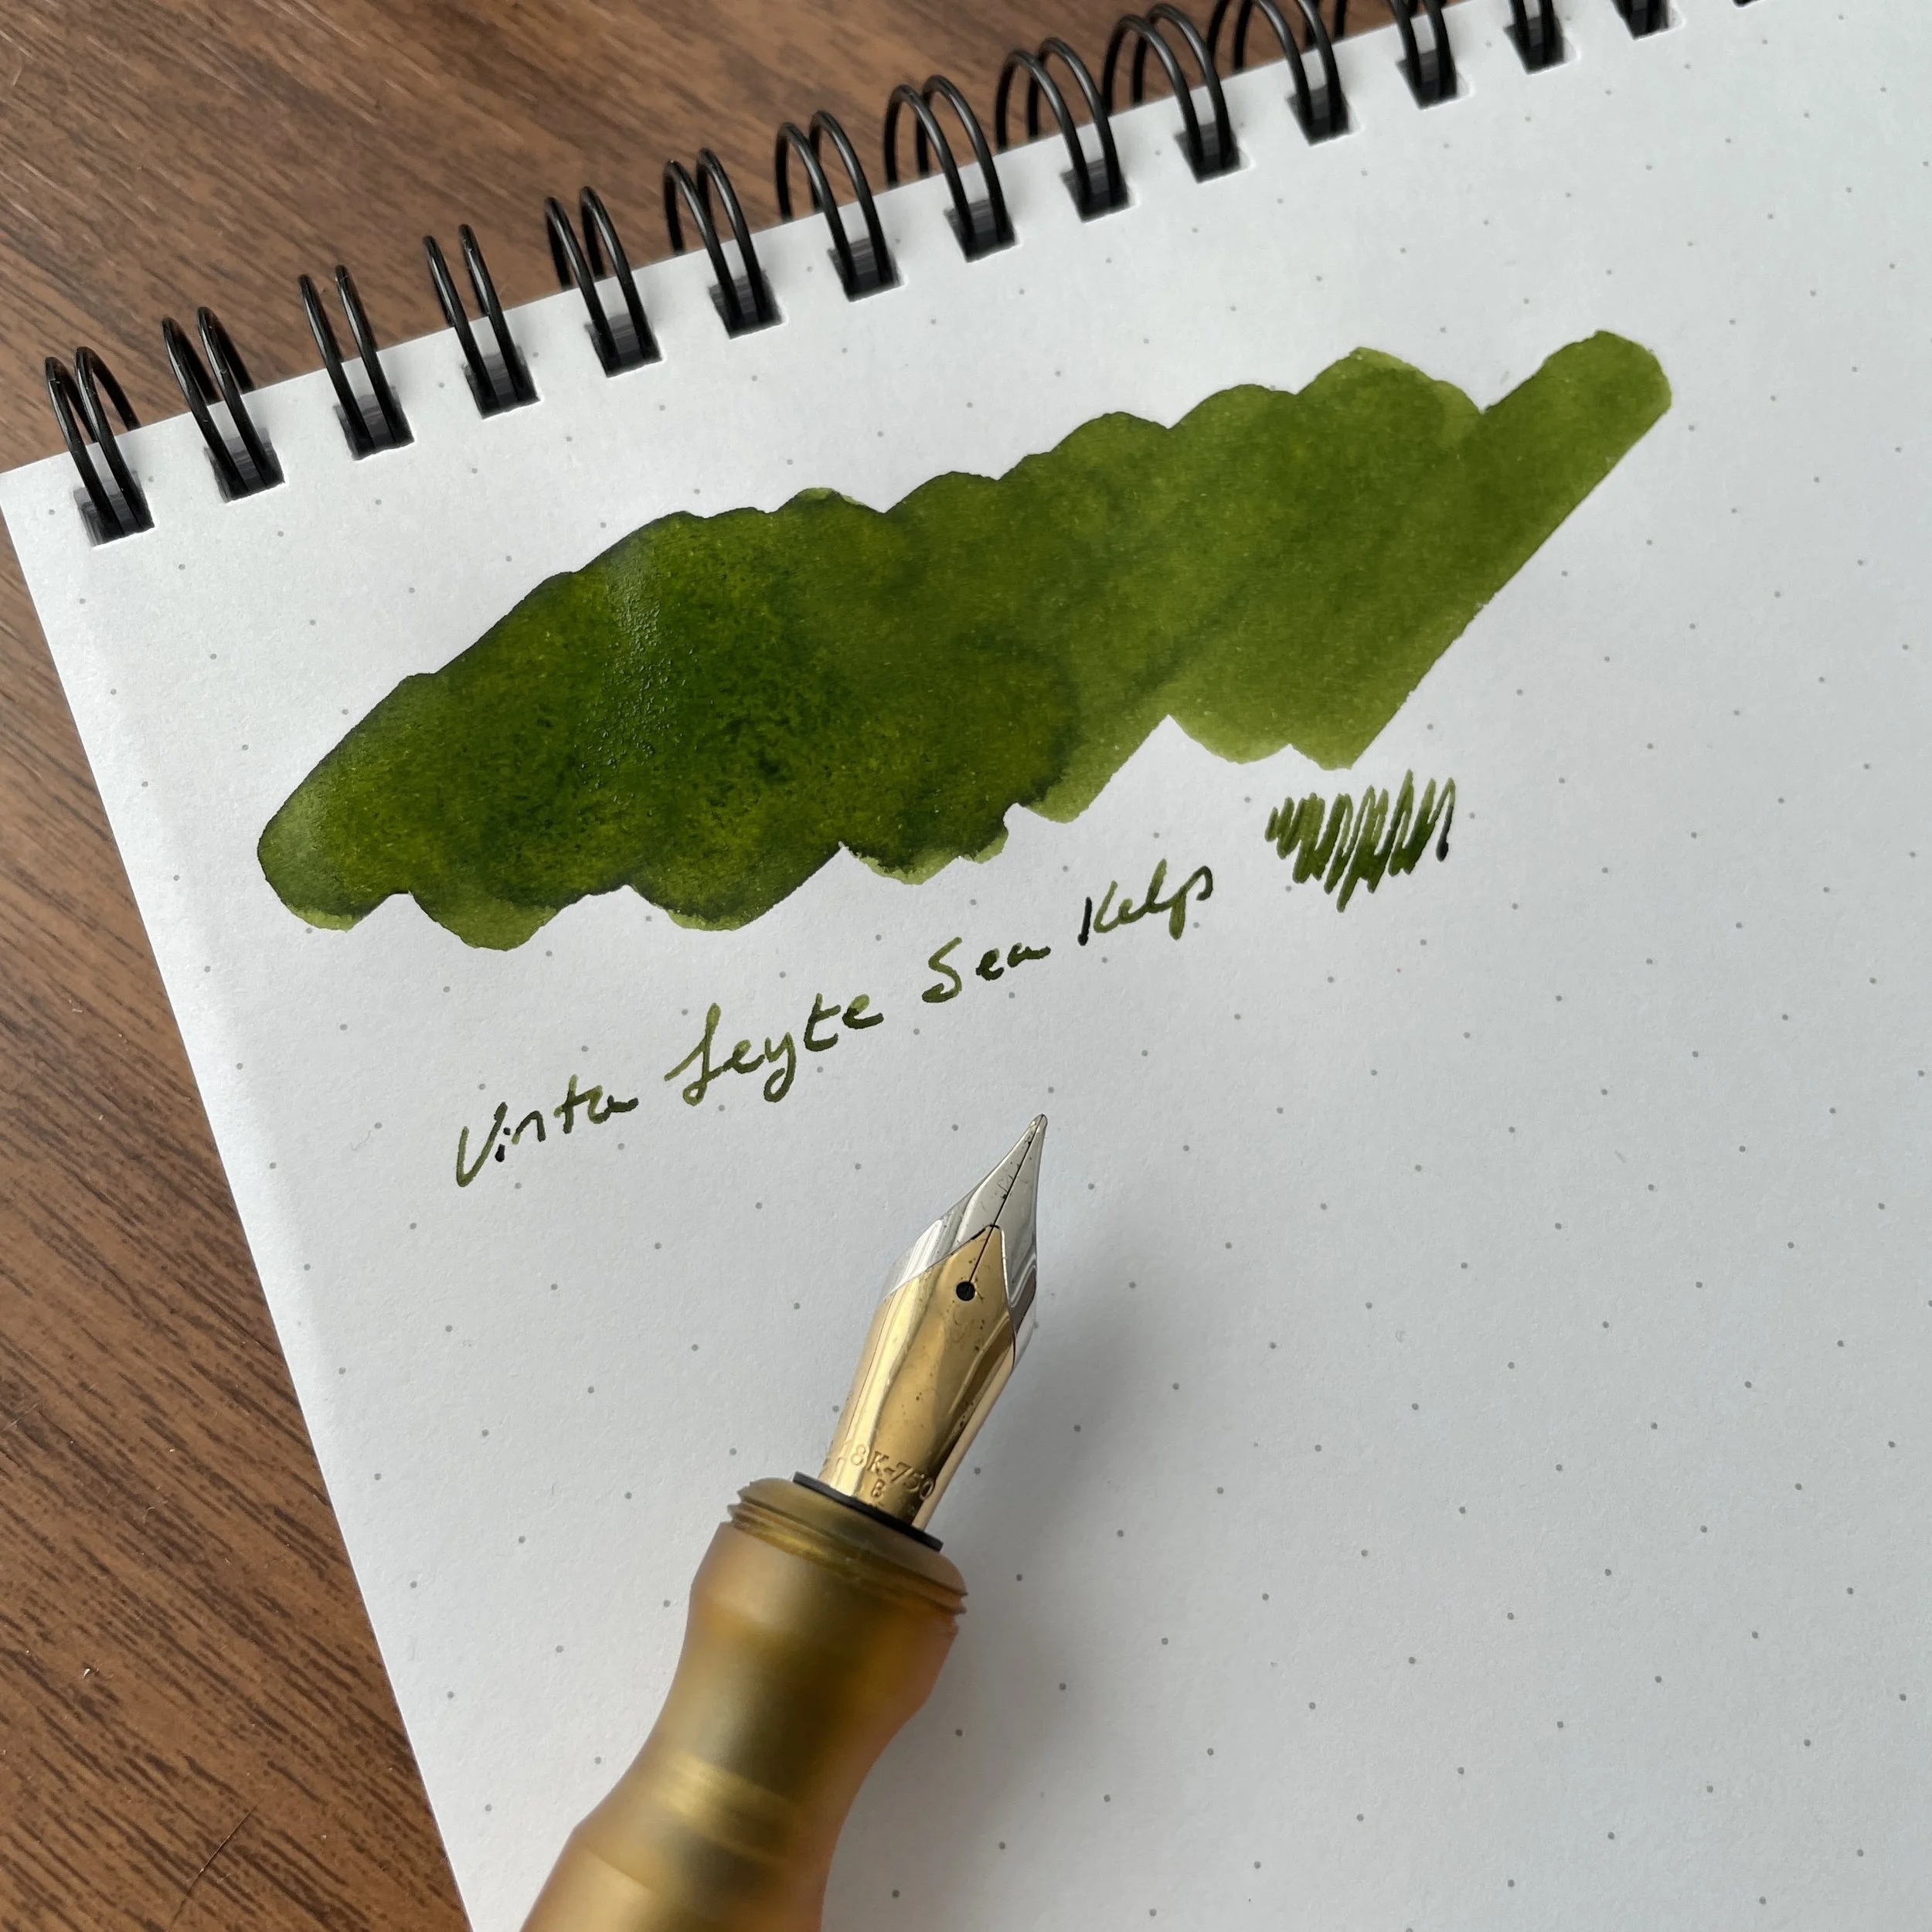 Vinta Leyte Sea Kelp
18K-750
B